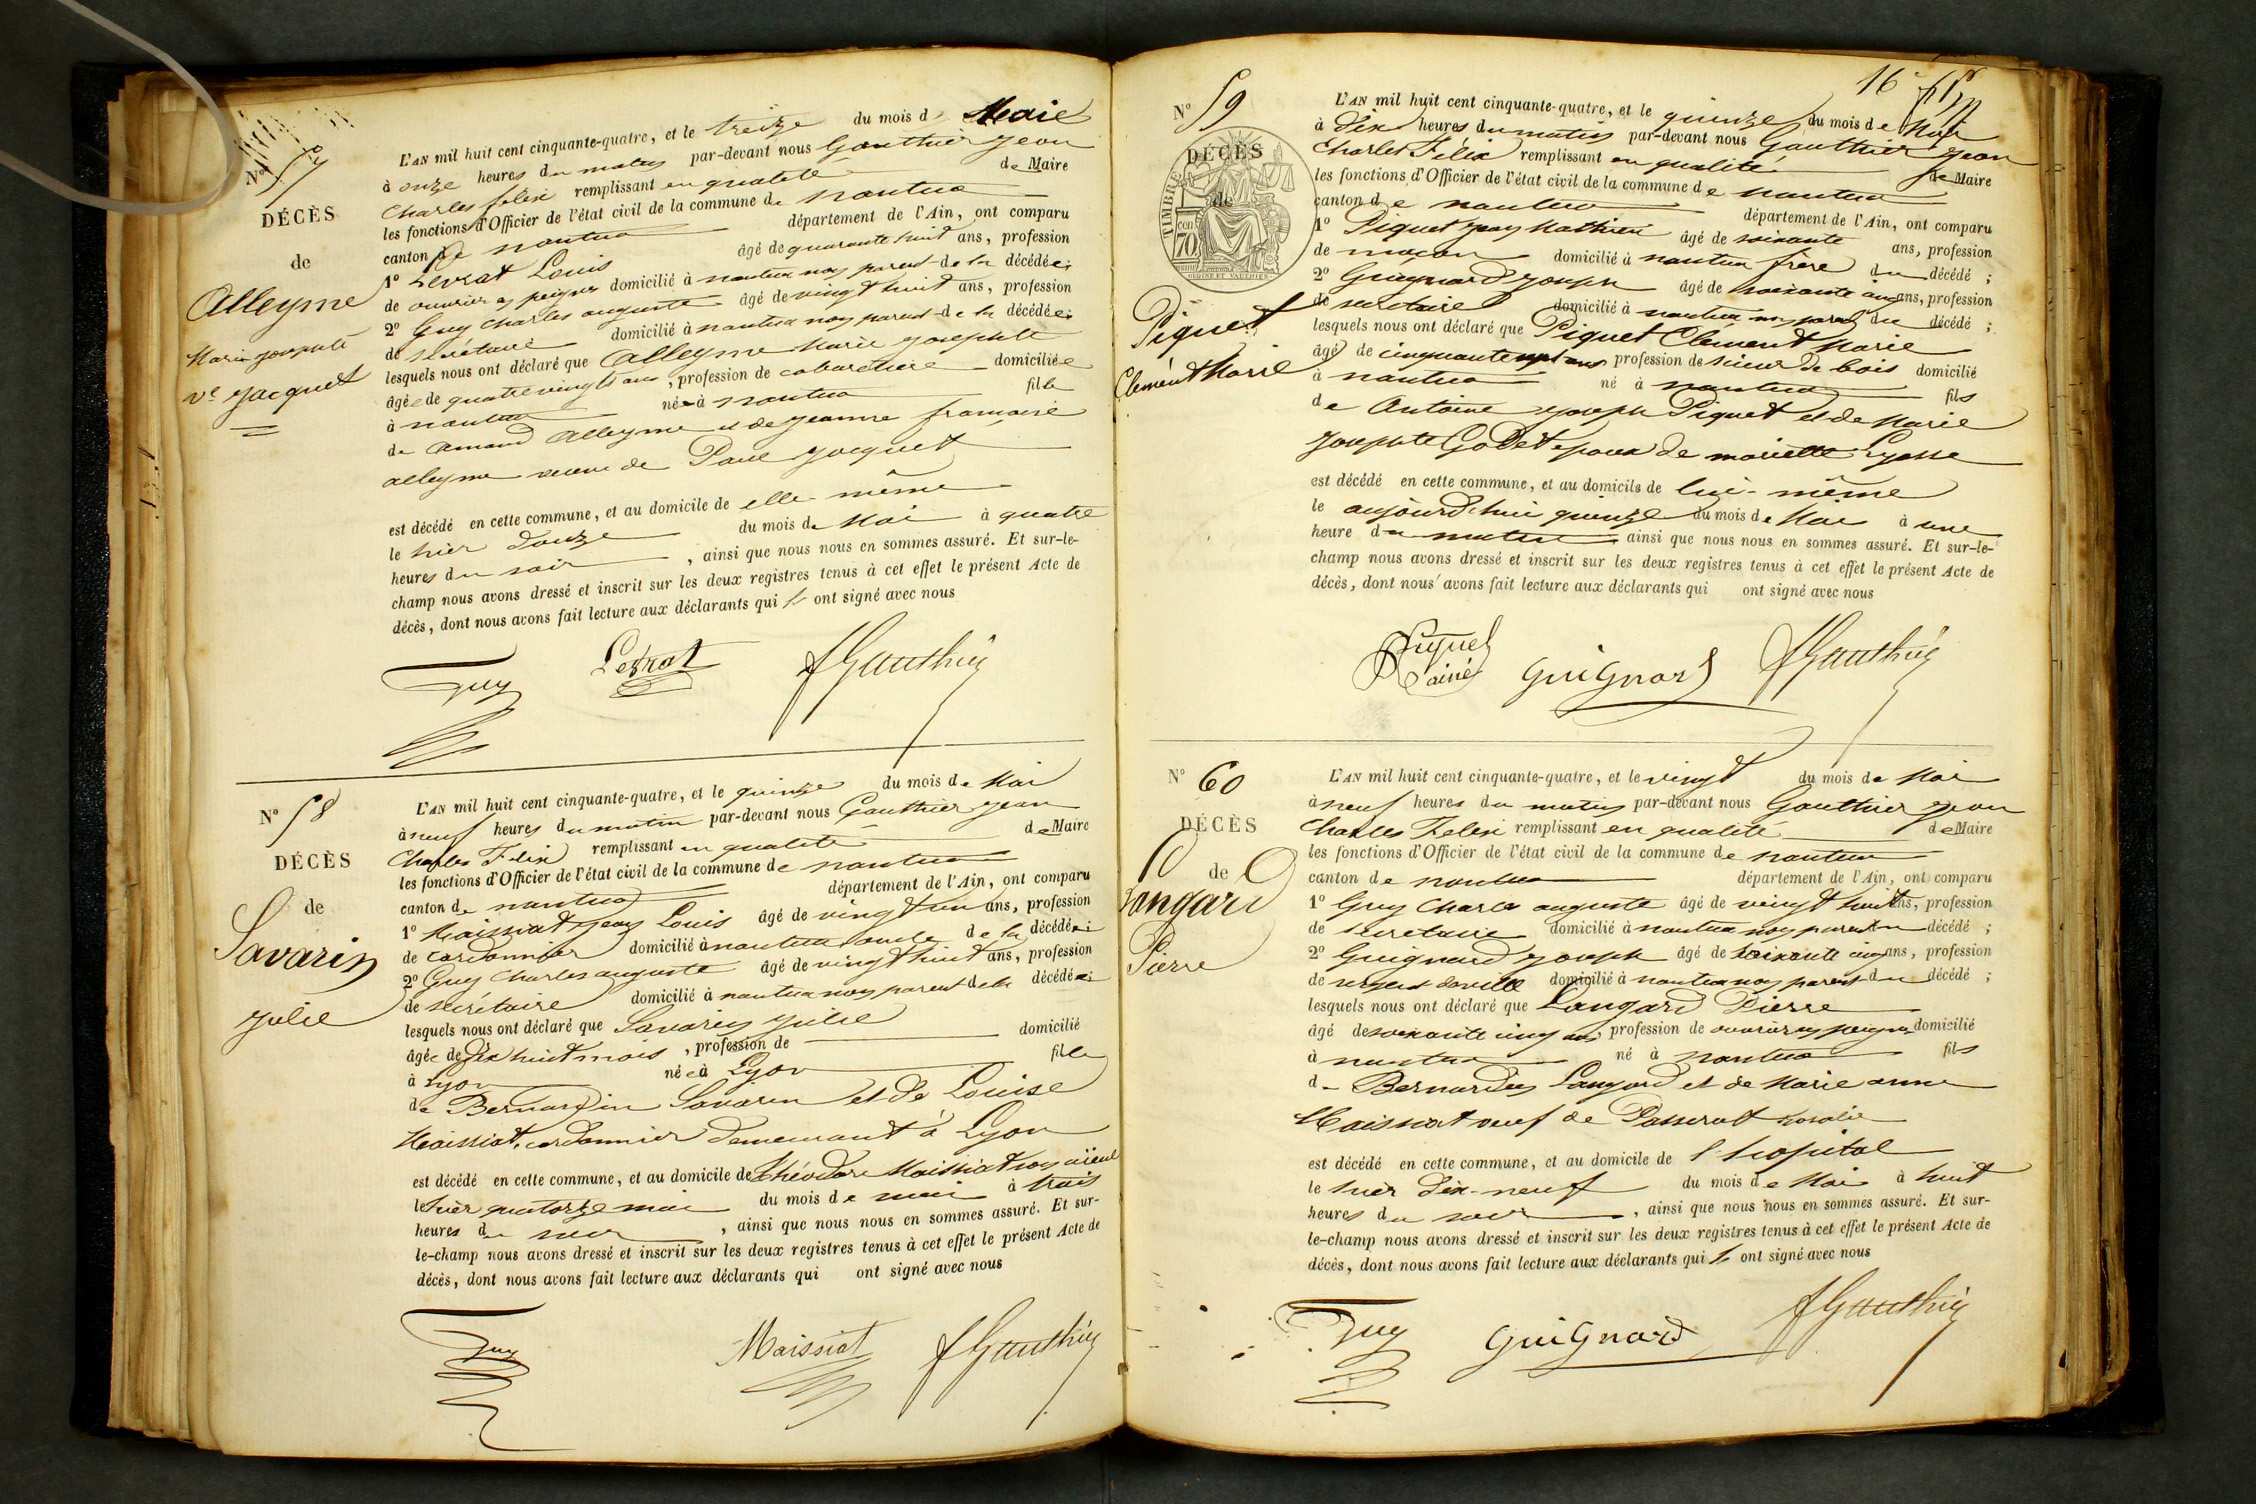 N° 57
DÉCÈS
de
Alleyme
Marie josephte
Ve Jacquet
L'AN mil huit cent cinquante-quatre, et le treize du mois de Mai
à onze heures du matin par-devant nous Gauthier Jean
Charles felix remplissant en qualité de Maire
les fonctions d'Officier de l'état civil de la commune de nantua
canton de nantua département de l'Ain, ont comparu
1° Levrat Louis âgé de quarante huit ans, profession
de ouvrier en peignes domicilié à nantua non parent de la décédée;
2° Guy Charles auguste âgé de vingt huit ans, profession
de secrétaire domicilié à nantua non parent de la décédée;
lesquels nous ont déclaré que Alleyme Marie josephte
âgée de quatre vingts ans, profession de cabaretiere domiciliée
à nantua née à nantua fille
de amand Alleyme et de jeanne francoise
alleyme veuve de Paul Jacquet
est décédé en cette commune, et au domicile de elle même
le hier douze du mois de Mai à quatre
heures du soir, ainsi que nous nous en sommes assuré. Et sur-le-
champ nous avons dressé et inscrit sur les deux registres tenus à cet effet le présent Acte de
décès, dont nous avons fait lecture aux déclarants qui ont signé avec nous
Guy Levrat fGauthier
N° 58
DÉCÈS
de
Savarin
Julie
L'AN mil huit cent cinquante-quatre, et le quinze du mois de Mai
à neuf heures du matin par-devant nous Gauthier Jean
Charles Felix remplissant en qualité de Maire
les fonctions d'Officier de l'état civil de la commune de nantua
canton de nantua département de l'Ain, ont comparu
1° Maissiat jean Louis âgé de vingt un ans, profession
de cordonnier domicilié à nantua oncle de la décédée;
2° Guy Charles auguste âgé de vingt huit ans, profession
de secrétaire domicilié à nantua non parent de la décédée;
lesquels nous ont déclaré que Savarin Julie
âgée de dix huit mois, profession de domicilié
à Lyon née à Lyon fille
de Bernardin Savarin et de Louise
Maissiat, cordonnier demeurant à Lyon
est décédé en cette commune, et au domicile de théodore Maissiat son aïeul
le hier quatorze mai du mois de mai à trois
heures du soir, ainsi que nous nous en sommes assuré. Et sur-
le-champ nous avons dressé et inscrit sur les deux registres tenus à cet effet le présent Acte de
décès, dont nous avons fait lecture aux déclarants qui ont signé avec nous
Guy Maissiat fGauthier
16
N° 59
DÉCÈS
de
TIMBRE
70 cen
Piquet
Clement Marie
L'AN mil huit cent cinquante-quatre, et le quinze du mois de Mai
à dix heures du matin par-devant nous Gauthier Jean
Charles Félix remplissant en qualité de Maire
les fonctions d'Officier de l'état civil de la commune de nantua
canton de nantua département de l'Ain, ont comparu
1° Piquet jean Mathieu âgé de soixante ans, profession
de maçon domicilié à nantua frère du décédé;
2° Guignard joseph âgé de soixante cinq ans, profession
de secrétaire domicilié à nantua non parent du décédé;
lesquels nous ont déclaré que Piquet Clément Marie
âgé de cinquante sept ans profession de scieur de bois domicilié
à nantua né à nantua fils
de Antoine joseph Piquet et de Marie
josephte Godet epoux de mariette
est décédé en cette commune, et au domicile de lui-même
le aujourd'hui quinze du mois de Mai à une
heure du matin ainsi que nous nous en sommes assuré. Et sur-le-
champ nous avons dressé et inscrit sur les deux registres tenus à cet effet le présent Acte de
décès, dont nous avons fait lecture aux déclarants qui ont signé avec nous
Piquet
ainé Guignard fGauthier
N° 60
DÉCÈS
de
Langard
Pierre
L'AN mil huit cent cinquante-quatre, et le vingt du mois de Mai
à neuf heures du matin par-devant nous Gauthier Jean
Charles Felix remplissant en qualité de Maire
les fonctions d'Officier de l'état civil de la commune de nantua
canton de nantua département de l'Ain, ont comparu
1° Guy Charles auguste âgé de vingt huit ans, profession
de secretaire domicilié à nantua non parent du décédé;
2° Guignard joseph âgé de soixante cinq ans, profession
de sergent de ville domicilié à nantua non parent du décédé;
lesquels nous ont déclaré que Langard Pierre
âgé de soixante cinq ans, profession de ouvrier en peignes domicilié
à nantua né à nantua fils
de Bernardin Langard et de Marie anne
Maissiat veuf de Passerat rosalie
est décédé en cette commune, et au domicile de l'hopital
le hier dix-neuf du mois de Mai à huit
heures du soir, ainsi que nous nous en sommes assuré. Et sur-
le-champ nous avons dressé et inscrit sur les deux registres tenus à cet effet le présent Acte de
décès, dont nous avons fait lecture aux déclarants qui ont signé avec nous
Guy Guignard fGauthier